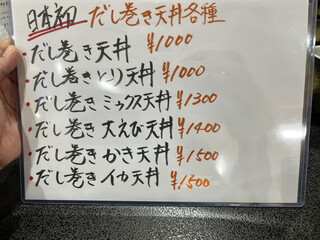 日本初 だし巻き天丼各種
・だし巻き天丼 ¥1000
・だし巻きとり天丼 ¥1000
・だし巻きミックス天丼 ¥1300
・だし巻き大えび天丼 ¥1400
・だし巻きかき天丼 ¥1500
・だし巻きイカ天丼 ¥1500